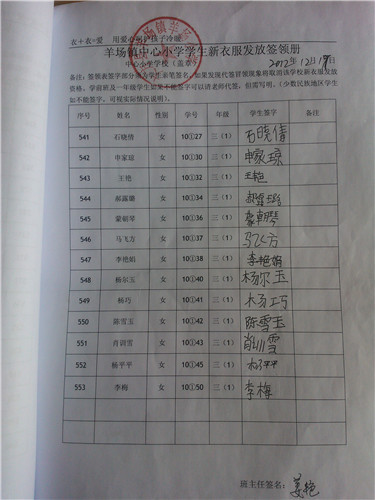 衣+衣=爱 用爱心呵护孩子冷暖
羊场镇中心小学学生新衣服发放签领册
中心小学学校(盖章) 2012年12月19日
备注:签领表签字部分须为学生亲笔签名,如果发现代签冒领现象将取消该学校新衣服发放
资格。学前班及一年级学生如果不能签字可以请老师代签,但需写明。(少数民族地区学生
如不能签字,可视实际情况说明)。
序号 姓名 性别 学号 年级 学生签字 备注
541 石晓倩 女 10①27 三(1) 石晓倩
542 申家琼 女 10①30 三(1) 申家琼
543 王艳 女 10①32 三(1) 王艳
544 郝露璐 女 10①34 三(1) 郝露璐
545 蒙朝琴 女 10①36 三(1) 蒙朝琴
546 马飞方 女 10①37 三(1) 马飞方
547 李艳娟 女 10①38 三(1) 李艳娟
548 杨尔玉 女 10①40 三(1) 杨尔玉
549 杨巧 女 10①41 三(1) 杨巧
550 陈雪玉 女 10①42 三(1) 陈雪玉
551 肖训雪 女 10①43 三(1) 肖训雪
552 杨平平 女 10①45 三(1) 杨平平
553 李梅 女 10①50 三(1) 李梅
班主任签名:姜艳